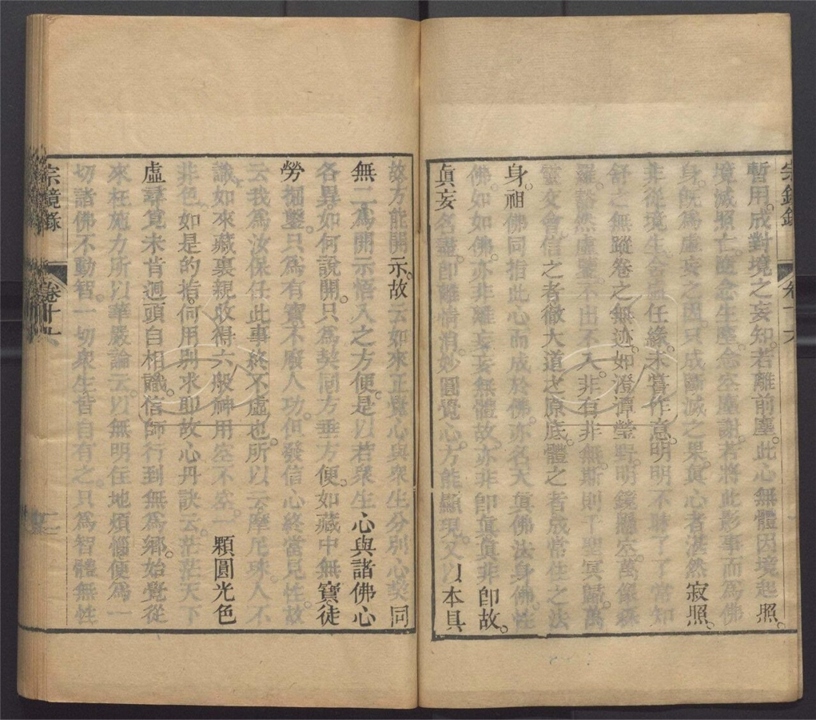 宗鏡錄 卷十六
暫用。成對境之妄知。若離前塵。此心無體因境起照。
境滅照亡隨念生塵念空塵謝若將此影事而為佛
身既為虛妄之因。只成斷滅之果。眞心者湛然寂照。
非從境生含虛任緣未嘗作意明明不昧了了常知
舒之無蹤卷之無迹。如澄潭瑩野明鏡懸空萬像森
羅豁然虛鑒。不出不入。非有非無。斯則千聖冥歸。萬
靈交會信之者徹大道之原底。體之者成常住之法
身。祖佛同指此心而成於佛。亦名天眞佛法身佛性
佛。如如佛。亦非離妄妄無體故。亦非卽眞眞非卽故。
眞妄名盡。卽離情消。妙圓覺心。方能顯現。又以本具
故方能開示。故云如來正覺心與衆生分別心契同
無二爲開示悟入之方便。是以若衆生心與諸佛心
各異如何說開。只爲契同方垂方便。如藏中無寶徒
勞掘鑿。只爲有寶不廢人功。但發信心終當見性。故
云我爲汝保任此事終不虛也。所以云摩尼珠人不
識如來藏裏親收得六般神用空不空。一顆圓光色
非色。如是的指。何用別求卽故心丹訣云。茫茫天下
虛尋覓未肯迴頭自相識。信師行到無爲鄕。始覺從
來枉施力所以華嚴論云以無明住地煩惱便爲一
切諸佛不動智。一切衆生皆自有之。只爲智體無性
宗鏡錄 卷十六